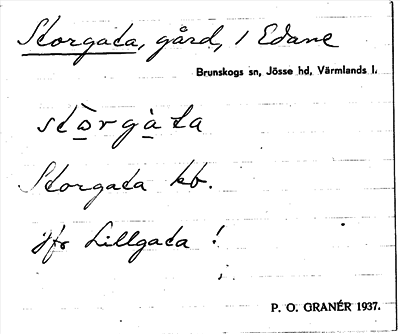 Storgata, gård, i Edane
Brunskogs sn, Jösse hd, Värmlands l.
stòrgàta
Storgata kb.
jfr Lillgata !
P. O. GRANÉR 1937.